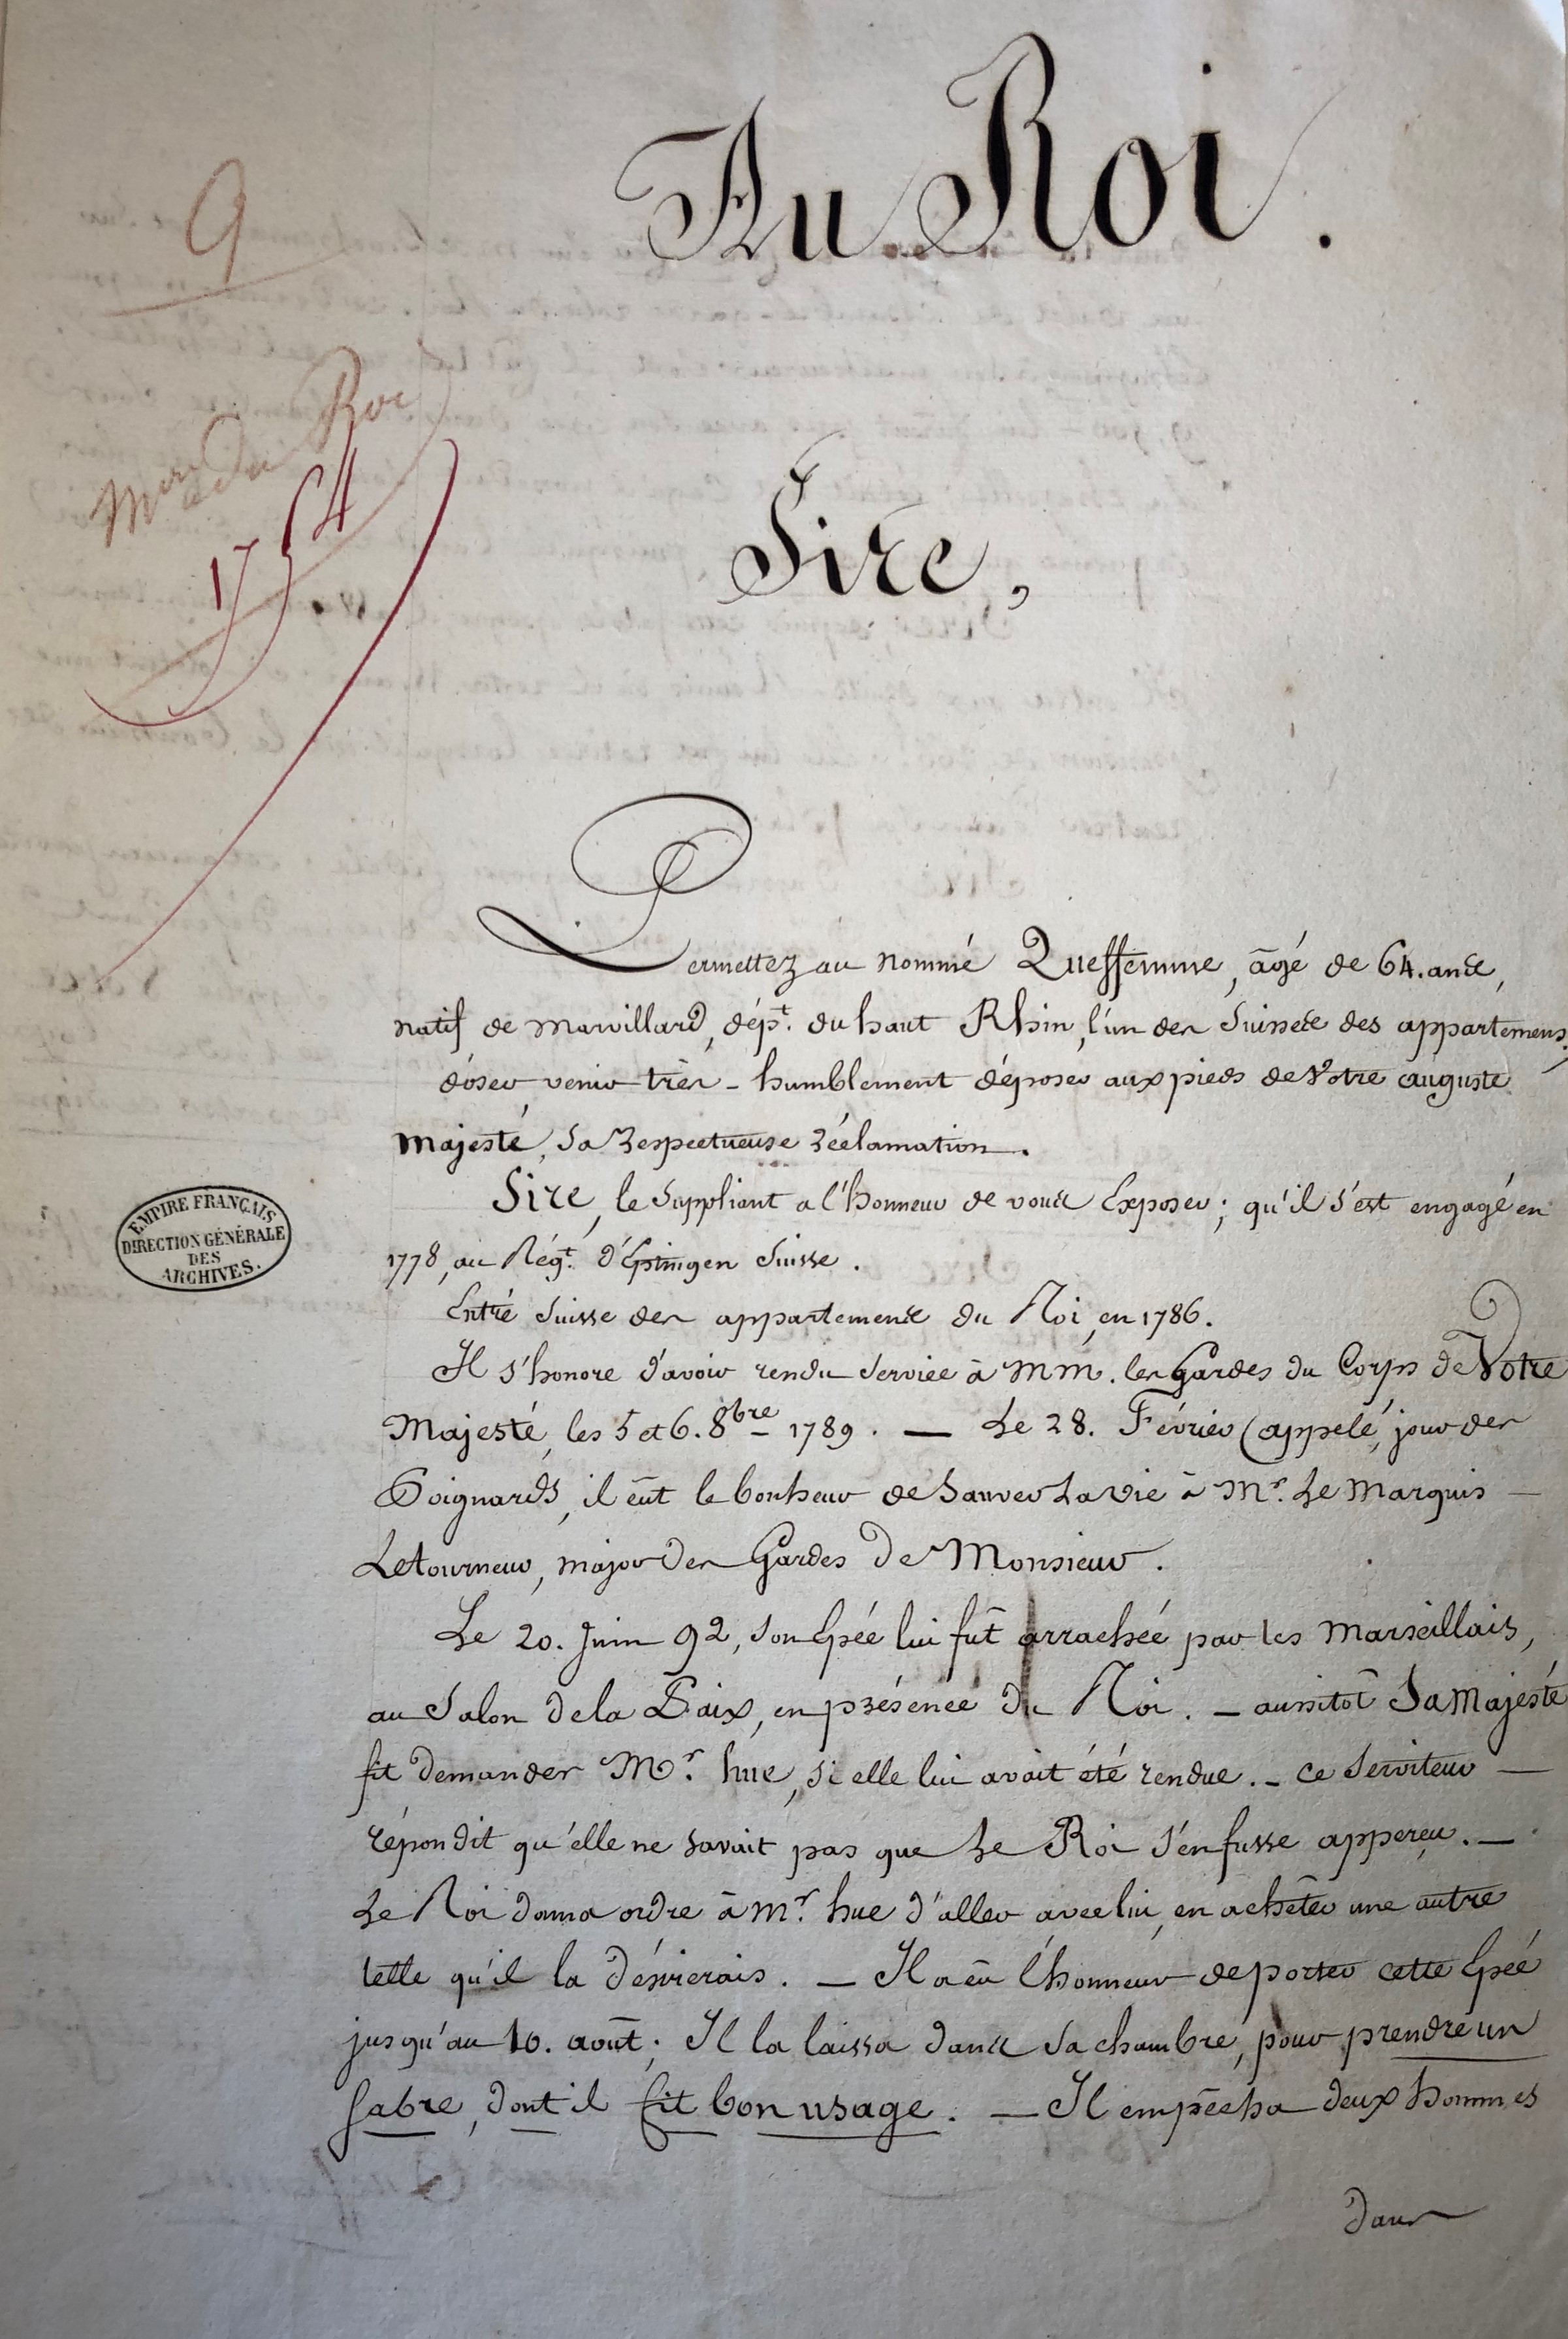 Au Roi.
9
Mon du Roi
1754
Sire,
Permettez au nommé Queffemme, âgé de 64. ans,
natif de Morvillard, dépt. du haut Rhin, l'un des Suisses des appartemens,
d'oser venir très-humblement déposer aux pieds de Votre auguste
Majesté, sa respectueuse réclamation.
Sire, le Suppliant a l'honneur de vous Exposer; qu'il s'est engagé en
1778, au Régt. d'Eptingen Suisse.
Entré Suisse des appartements du Roi, en 1786.
Il s'honore d'avoir rendu service à MM. les Gardes du Corps de Votre
Majesté, les 5 et 6. 8bre 1789. — Le 28. Février (appelé, jour des
Poignards, il eût le bonheur de sauver la vie à Mr. Le Marquis —
Letourneur, major des Gardes de Monsieur.
Le 20. Juin 92, son Epée lui fût arrachée par les Marseillais,
au Salon de la Paix, en présence du Roi. — aussitôt Sa Majesté
fit demander Mr. hüe, si elle lui avait été rendue. — ce Serviteur —
répondit qu'elle ne savait pas que Le Roi s'en fusse apperçu. —
Le Roi donna ordre à Mr. hue d'aller avec lui, en achêter une autre
telle qu'il la désirerais. — Il a eu l'honneur de porter cette Epée
jusqu'au 10. août; Il la laissa dans sa chambre, pour prendre un
sabre, dont il fit bon usage. — Il empêcha deux hommes
dans
EMPIRE FRANÇAIS
DIRECTION GÉNÉRALE
DES
ARCHIVES.